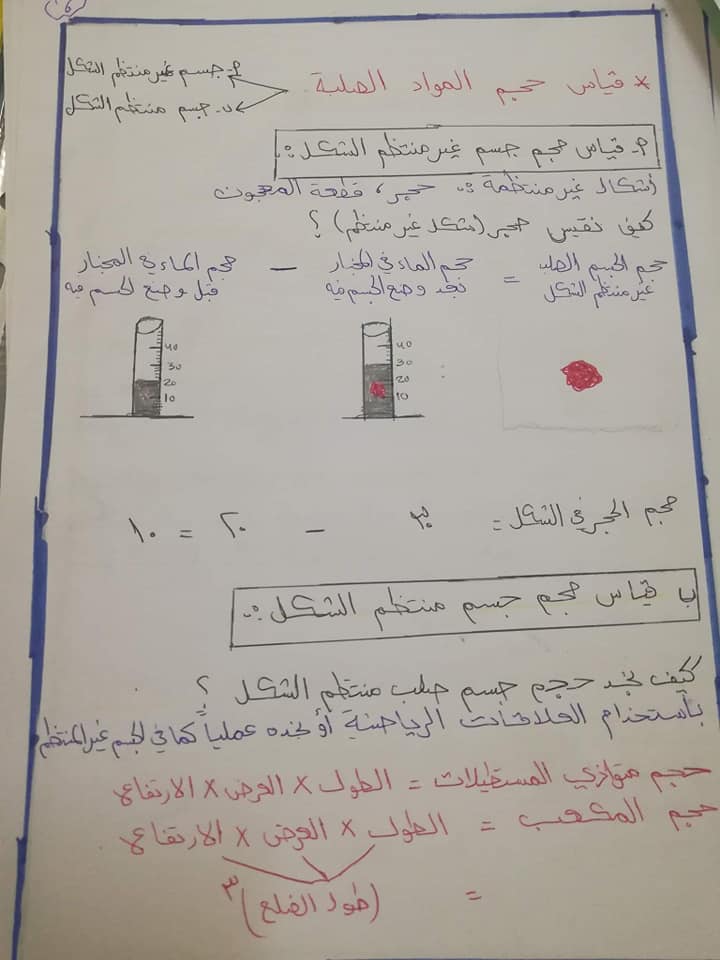 * قياس حجم المواد الصلبة
أ- جسم غير منتظم الشكل
ب- جسم منتظم الشكل
أ- قياس حجم جسم غير منتظم الشكل :.
أشكال غير منتظمة :. حجر، قطعة المعجون
كيف نقيس حجر (شكل غير منتظم) ؟
حجم الجسم الصلب غير منتظم الشكل = حجم الماء في المخبار بعد وضع الجسم فيه – حجم الماء في المخبار قبل وضع الجسم فيه
40
30
20
10
40
30
20
10
حجم الحجر في الشكل = ٣٠ – ٢٠ = ١٠
ب قياس حجم جسم منتظم الشكل :.
كيف نجد حجم جسم صلب منتظم الشكل ؟
باستخدام العلاقات الرياضية أو نجده عملياً كما في الجسم غير المنتظم
حجم متوازي المستطيلات = الطول × العرض × الارتفاع
حجم المكعب = الطول × العرض × الارتفاع
= (طول الضلع)³